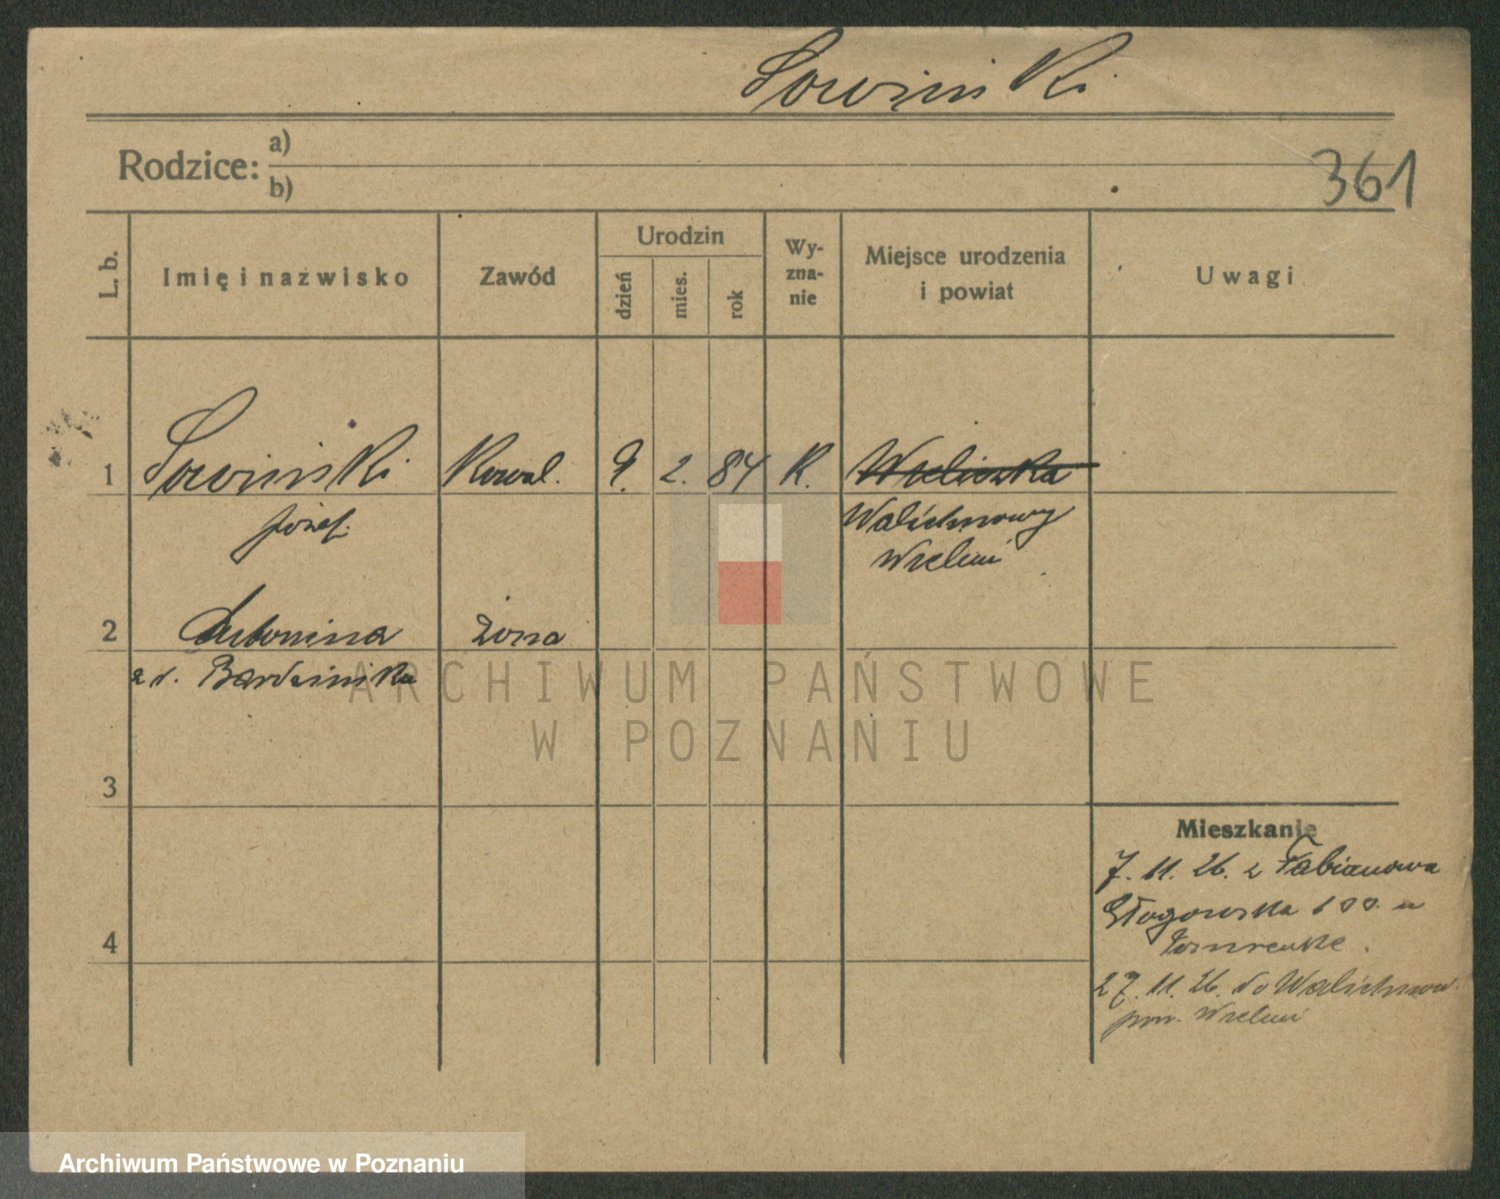 Sowiński
Rodzice: a)
b)
361
L. b.
Imię i nazwisko
Zawód
Urodzin
dzień
mies.
rok
Wy-
zna-
nie
Miejsce urodzenia
i powiat
Uwagi
1
Sowiński
Kowal.
9.
2.
84
K.
Wieliczka
Józef.
Walichnowy
Wieluń
2
Antonina
żona
z d. Bardzińska
3
Mieszkanie
7. 11. 26. z Fabianowa
Głogowska 100. u
4
27. 11. 26. do Walichnow.
pow. Wieluń
ARCHIWUM PAŃSTWOWE
W POZNANIU
Archiwum Państwowe w Poznaniu